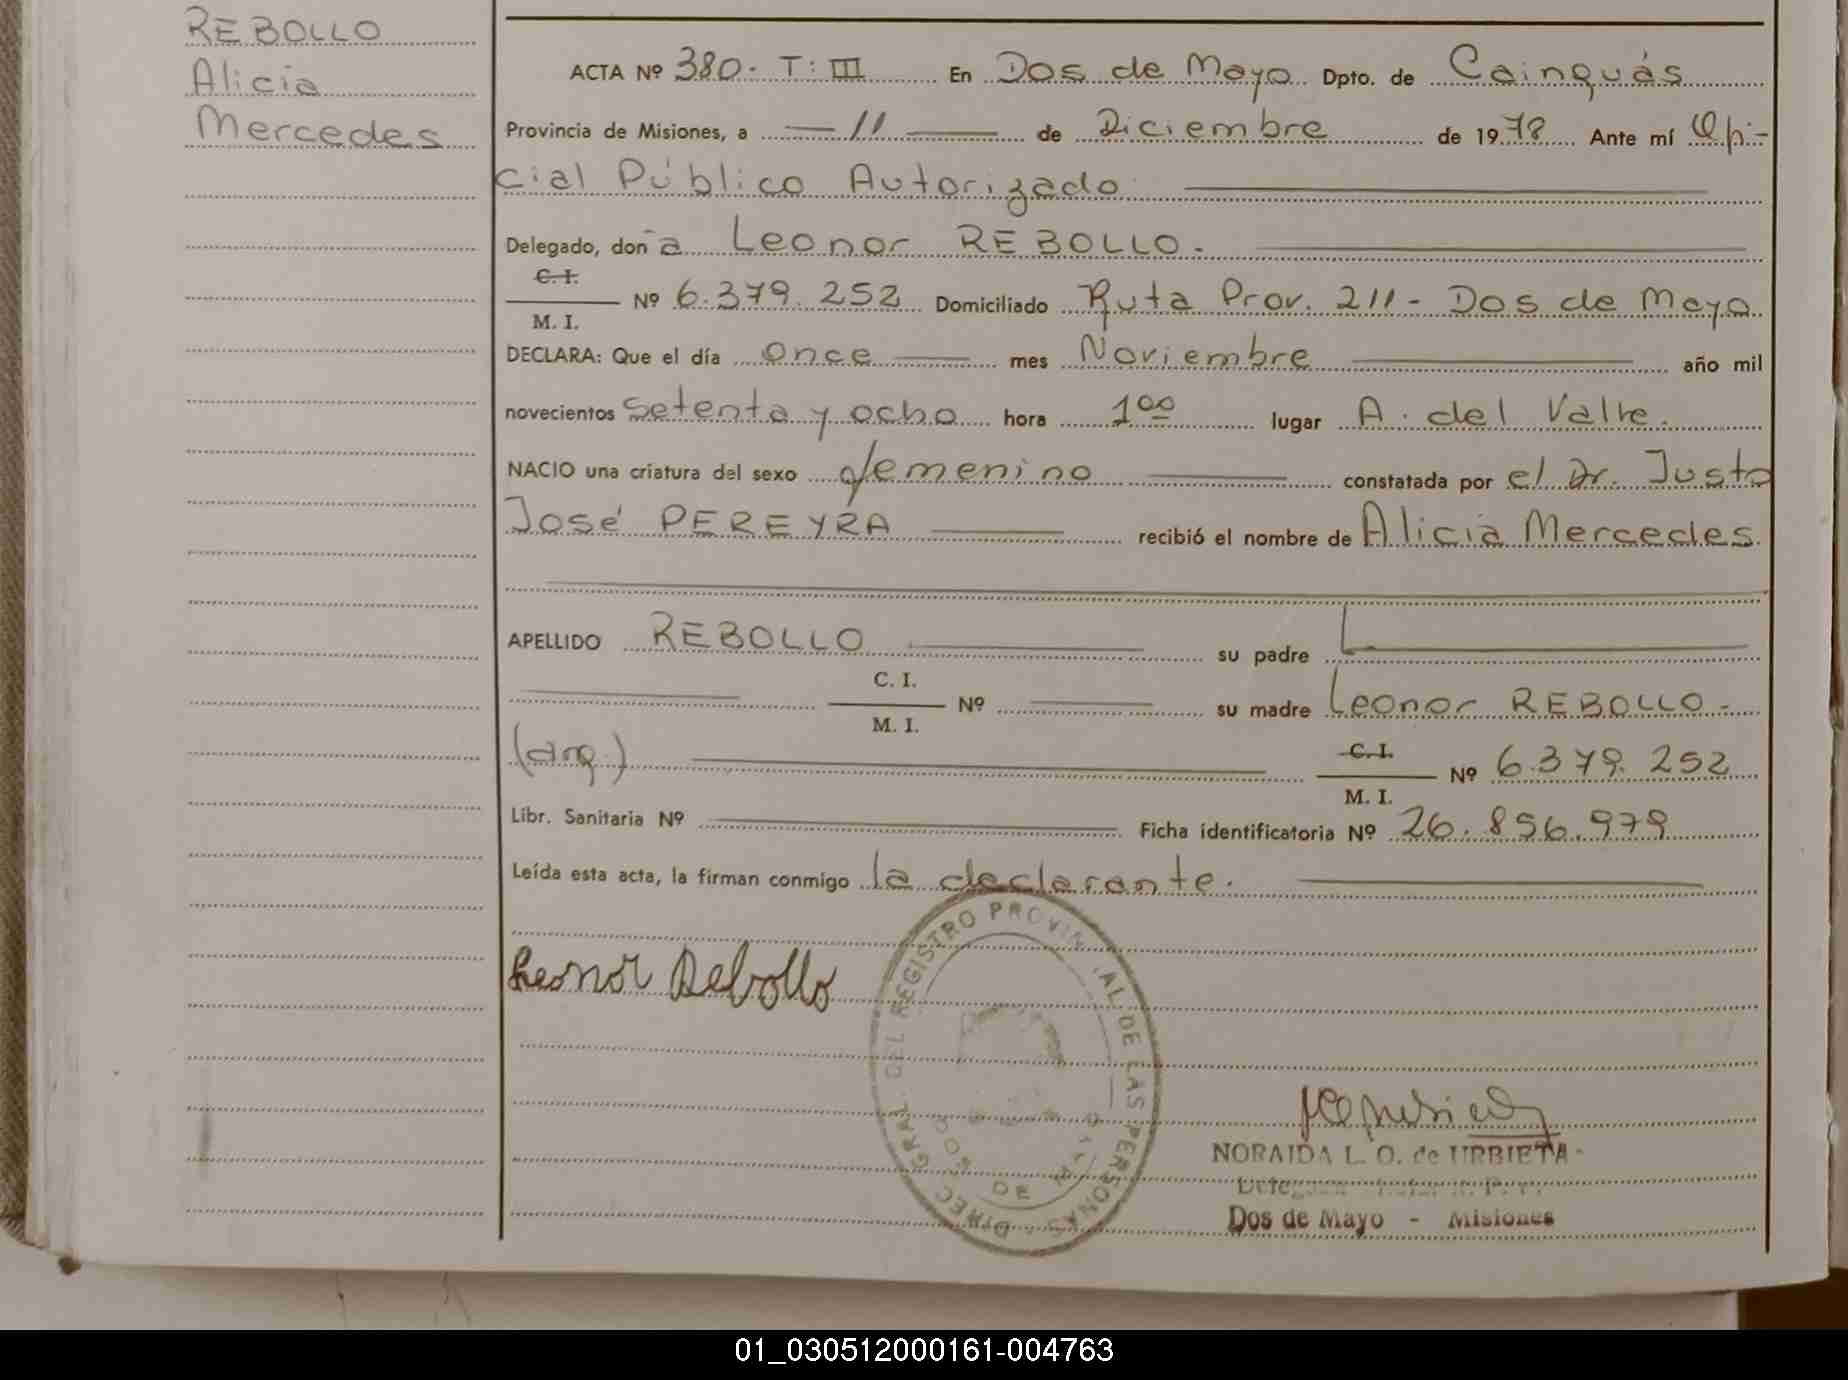 REBOLLO
Alicia
Mercedes
ACTA Nº 380. T: III En Dos de Mayo Dpto. de Cainguás
Provincia de Misiones, a — 11 — de Diciembre de 1978 Ante mí Ofi-
cial Público Autorizado
Delegado, doña Leonor REBOLLO.
C. I.
M. I. Nº 6.379.252 Domiciliado Ruta Prov. 211 - Dos de Mayo
DECLARA: Que el día once mes Noviembre año mil
novecientos setenta y ocho hora 1 00 lugar A. del Valle.
NACIO una criatura del sexo femenino constatada por el Dr. Justo
José PEREYRA recibió el nombre de Alicia Mercedes
APELLIDO REBOLLO su padre
C. I.
M. I. Nº su madre Leonor REBOLLO-
(arg.) C. I.
M. I. Nº 6.379.252
Libr. Sanitaria Nº Ficha identificatoria Nº 26.856.979
Leída esta acta, la firman conmigo la declarante.
Leonor Rebollo
DIREC. GRAL. DEL REGISTRO PROVINCIAL DE LAS PERSONAS
DOS DE MAYO
NORAIDA L. O. de URBIETA
Dos de Mayo - Misiones
01_030512000161-004763